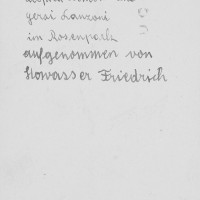 und
gersi Lanzoni
im Rosenpark
aufgenommen von
Howasser Friedrich